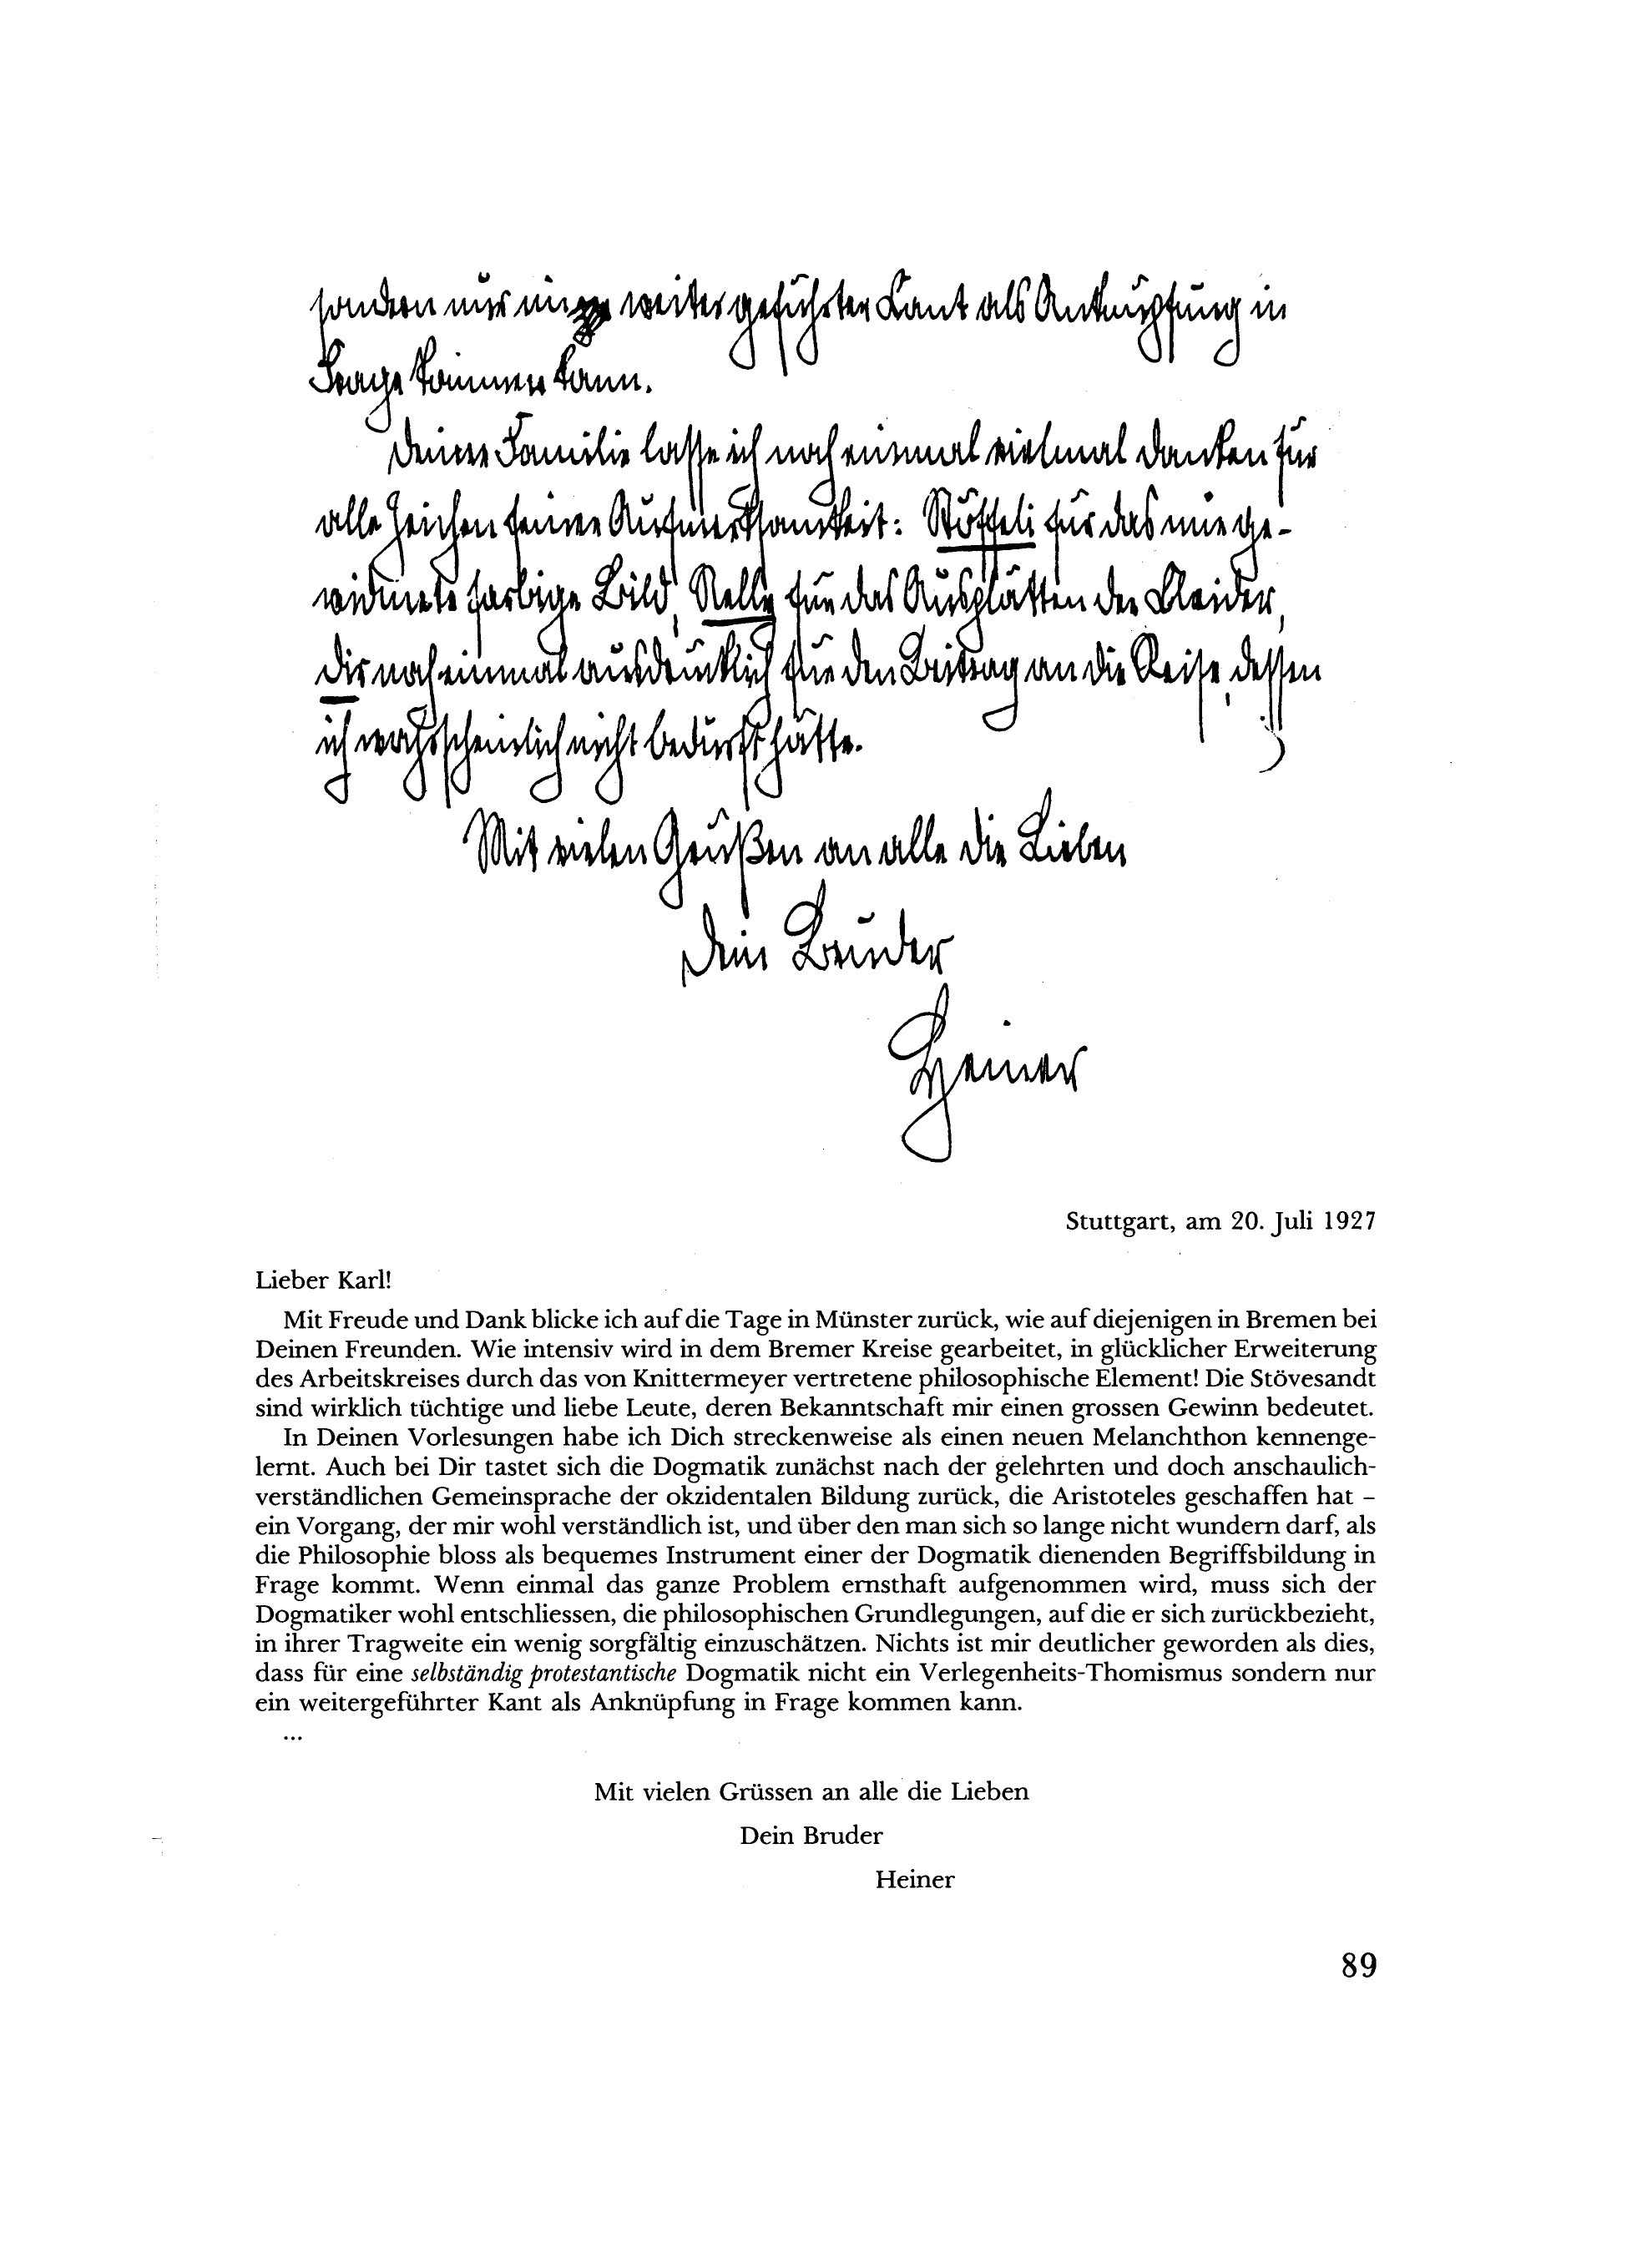 sondern nur ein weitergeführter Kant als Anknüpfung in
Frage kommen kann.
Deiner Familie lasse ich noch einmal vielmal danken für
alle Zeichen seiner Aufmerksamkeit: Stöffeli für das mir ge-
widmete farbige Bild, Nelly für das Ausplätten der Kleider,
Dir noch einmal ausdrücklich für den Beitrag an die Reise, dessen
ich wahrscheinlich nicht bedurft hätte.
Mit vielen Grüßen an alle die Lieben
Dein Bruder
Heiner
Stuttgart, am 20. Juli 1927
Lieber Karl!
Mit Freude und Dank blicke ich auf die Tage in Münster zurück, wie auf diejenigen in Bremen bei
Deinen Freunden. Wie intensiv wird in dem Bremer Kreise gearbeitet, in glücklicher Erweiterung
des Arbeitskreises durch das von Knittermeyer vertretene philosophische Element! Die Stövesandt
sind wirklich tüchtige und liebe Leute, deren Bekanntschaft mir einen grossen Gewinn bedeutet.
In Deinen Vorlesungen habe ich Dich streckenweise als einen neuen Melanchthon kennenge-
lernt. Auch bei Dir tastet sich die Dogmatik zunächst nach der gelehrten und doch anschaulich-
verständlichen Gemeinsprache der okzidentalen Bildung zurück, die Aristoteles geschaffen hat –
ein Vorgang, der mir wohl verständlich ist, und über den man sich so lange nicht wundern darf, als
die Philosophie bloss als bequemes Instrument einer der Dogmatik dienenden Begriffsbildung in
Frage kommt. Wenn einmal das ganze Problem ernsthaft aufgenommen wird, muss sich der
Dogmatiker wohl entschliessen, die philosophischen Grundlegungen, auf die er sich zurückbezieht,
in ihrer Tragweite ein wenig sorgfältig einzuschätzen. Nichts ist mir deutlicher geworden als dies,
dass für eine selbständig protestantische Dogmatik nicht ein Verlegenheits-Thomismus sondern nur
ein weitergeführter Kant als Anknüpfung in Frage kommen kann.
...
Mit vielen Grüssen an alle die Lieben
Dein Bruder
Heiner
89